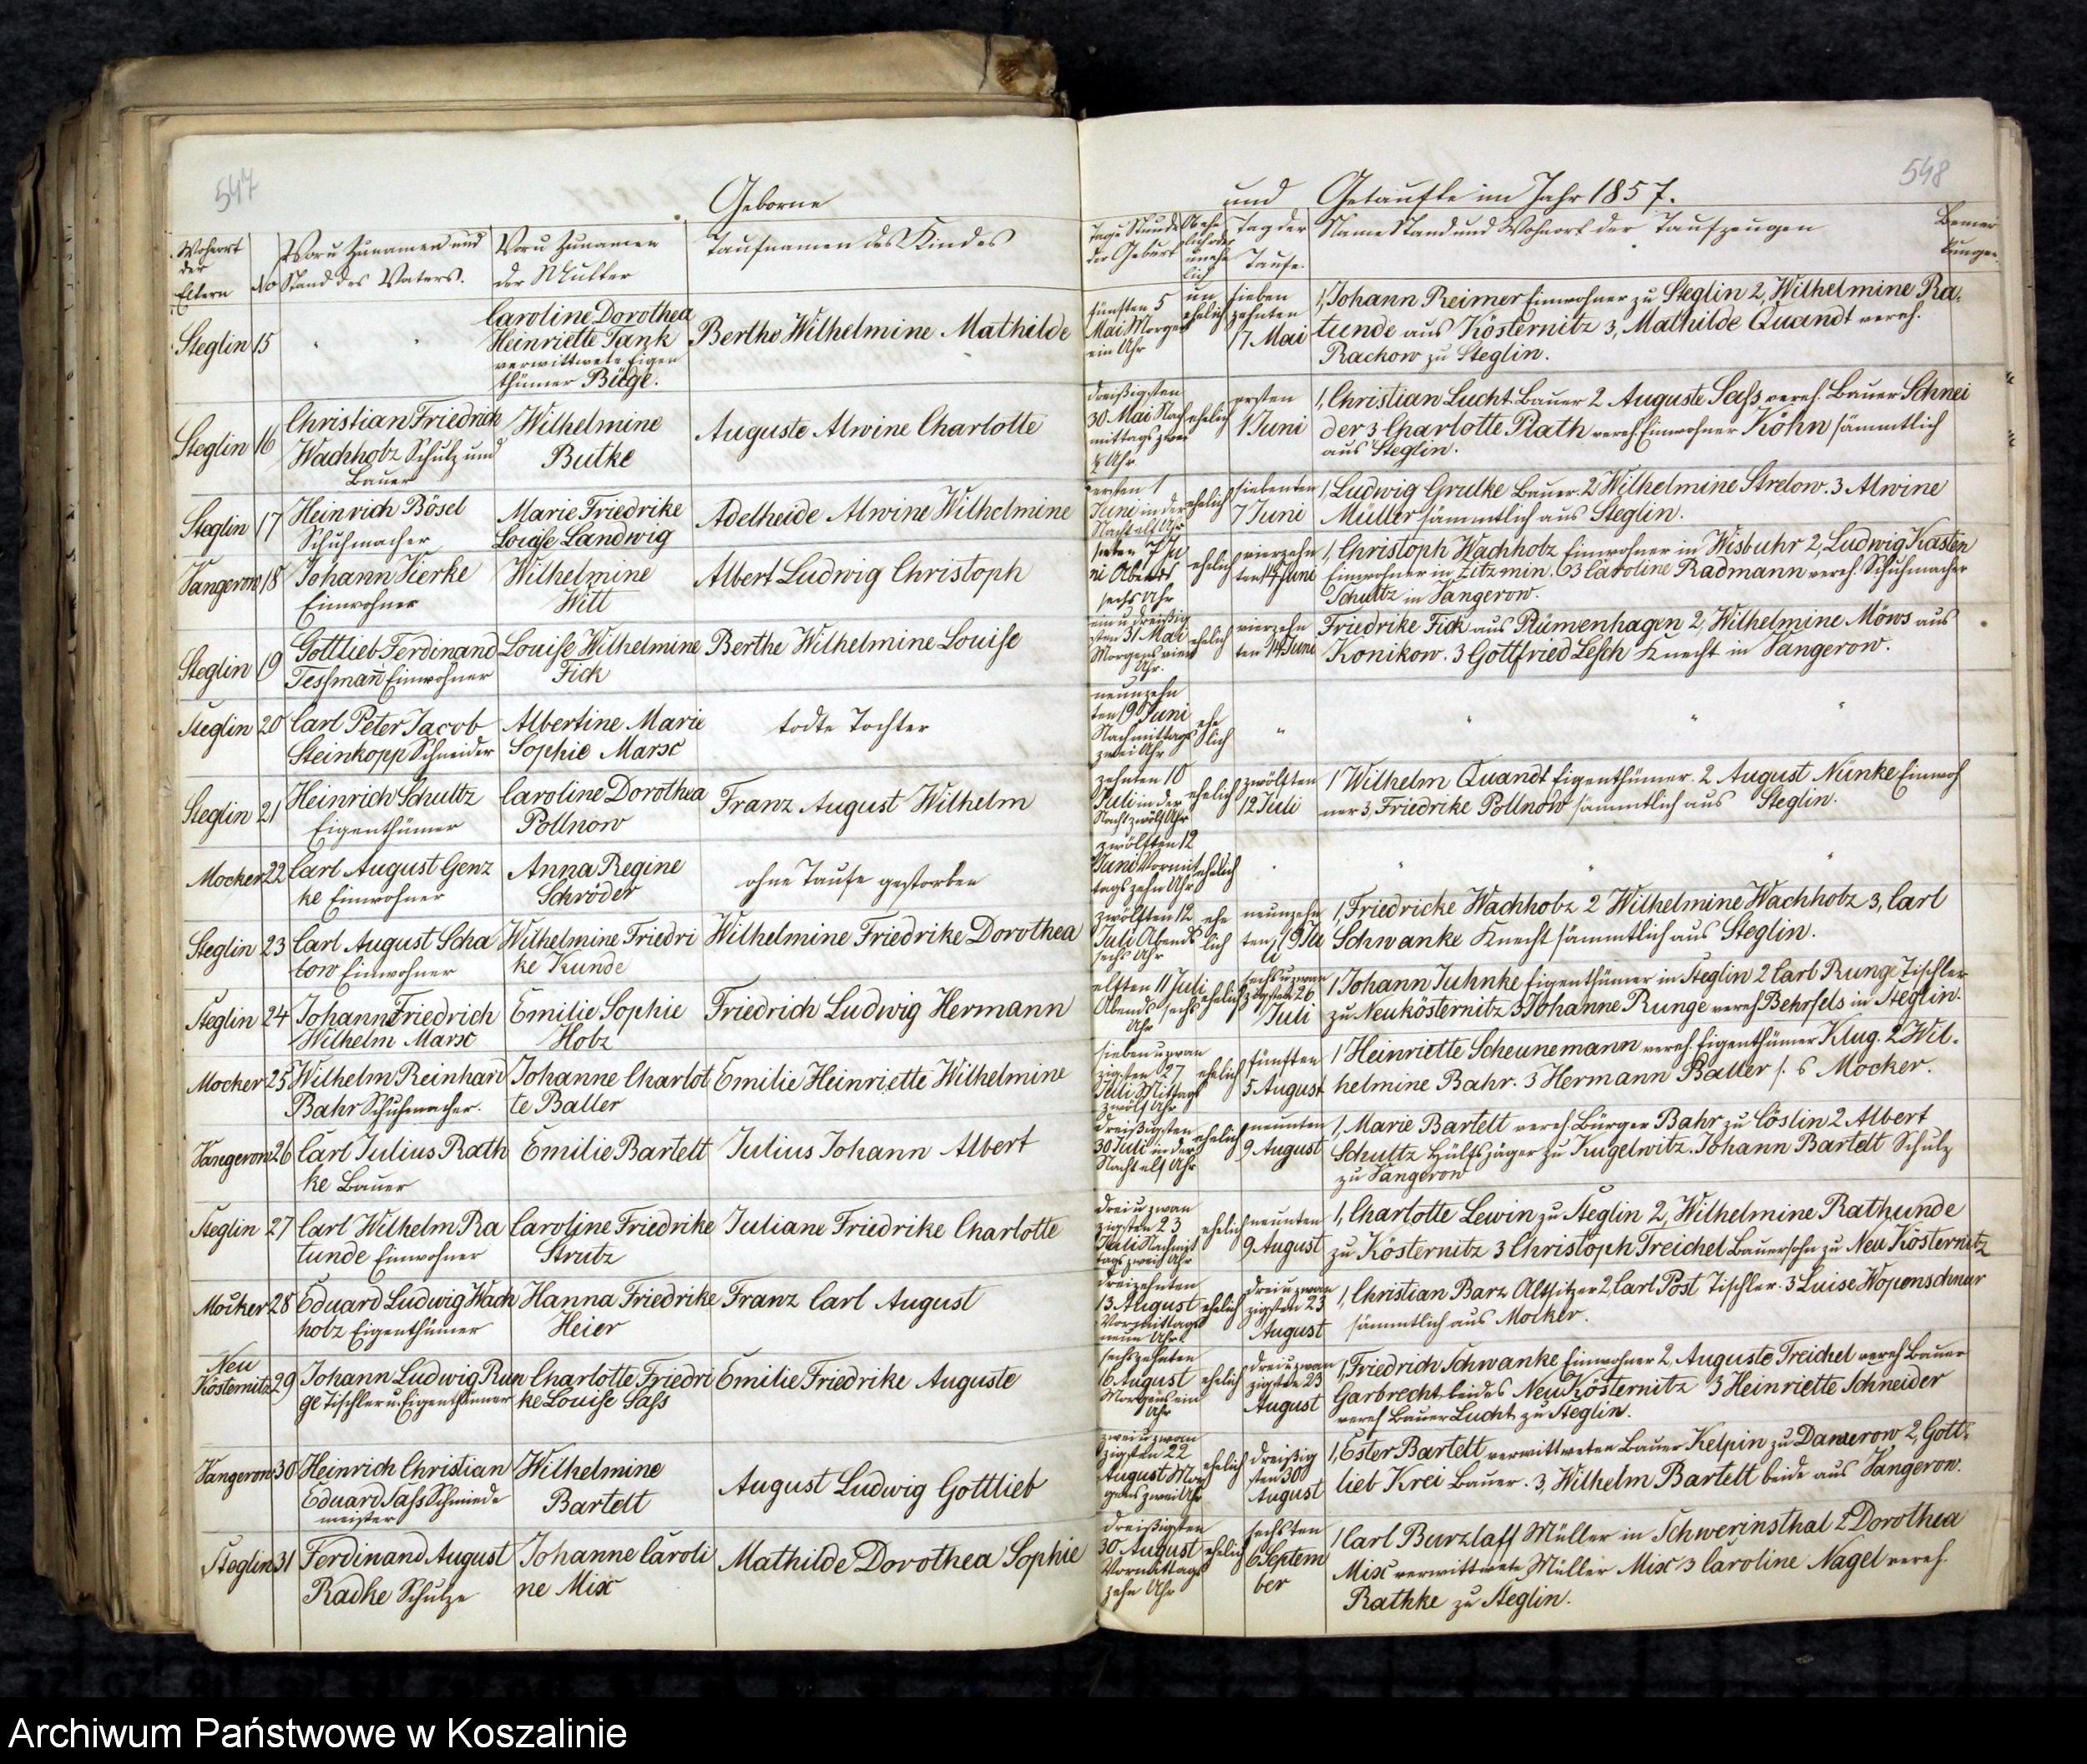 547
Geborne
Wohnort der Eltern
No
Vor u Zunamen und Stand des Vaters.
Vor u Zunamen der Mutter
Taufnamen des Kindes
Steglin 15
Caroline Dorothea
Heinriette Tank
verwittwete Eigen
thümer Bütge.
Berthe Wilhelmine Mathilde
Steglin 16
Christian Friedrich
Wachholz Schulz und
Bauer
Wilhelmine
Butke
Auguste Alwine Charlotte
Steglin 17
Heinrich Bösel
Schuhmacher
Marie Friedrike
Louise Landwig
Adelheide Alwine Wilhelmine
Vangerow 18
Johann Vierke
Einwohner
Wilhelmine
Witt
Albert Ludwig Christoph
Steglin 19
Gottlieb Ferdinand
Tessmañ Einwohner
Louise Wilhelmine
Fick
Berthe Wilhelmine Louise
Steglin 20
Carl Peter Jacob
Steinkopp Schneider
Albertine Marie
Sophie Marx
todte Tochter
Steglin 21
Heinrich Schultz
Eigenthümer
Caroline Dorothea
Pollnow
Franz August Wilhelm
Mocker 22
Carl August Genz
ke Einwohner
Anna Regine
Schröder
ohne Taufe gestorben
Steglin 23
Carl August Scha
low Einwohner
Wilhelmine Friedri
ke Kunde
Wilhelmine Friedrike Dorothea
Steglin 24
Johann Friedrich
Wilhelm Marx
Emilie Sophie
Holz
Friedrich Ludwig Hermann
Mocker 25
Wilhelm Reinhard
Bahr Schuhmacher.
Johanne Charlot
te Baller
Emilie Heinriette Wilhelmine
Vangerow 26
Carl Julius Rath
ke Bauer
Emilie Bartelt
Julius Johann Albert
Steglin 27
Carl Wilhelm Ra
tunde Einwohner
Caroline Friedrike
Strutz
Juliane Friedrike Charlotte
Mocker 28
Eduard Ludwig Wach
holz Eigenthümer
Hanna Friedrike
Heier
Franz Carl August
Neu
Kösternitz 29
Johann Ludwig Run
ge Tischler u. Eigenthümer
Charlotte Friedri
ke Louise Sass
Emilie Friedrike Auguste
Vangerow 30
Heinrich Christian
Eduard Sass Schmiede
meister
Wilhelmine
Bartelt
August Ludwig Gottlieb
Steglin 31
Ferdinand August
Radke Schulze
Johanne Caroli
ne Mix
Mathilde Dorothea Sophie
548
und Getaufte im Jahr 1857.
Tag u Stunde der Geburt
Ob ehe
lich oder
unehe
lich
Tag der Taufe.
Name Stand und Wohnort der Taufzeugen
Bemer
kungen
fünften 5
Mai Morgen
ein Uhr
un
ehelich
sieben
zehnten
17 Mai
1, Johann Reimer Einwohner zu Steglin 2, Wilhelmine Ra-
tunde aus Kösternitz 3, Mathilde Quandt vereh.
Rackow zu Steglin.
dreißigsten
30. Mai Nach
mittags zwei
Uhr
ehelich
ersten
1 Juni
1, Christian Lucht Bauer 2 Auguste Sass vereh. Bauer Schnei
der 3 Charlotte Rath vereh. Einwohner Köhn sämmtlich
aus Steglin.
ersten 1
Juni in der
Nacht elf Uhr
ehelich
siebenten
7 Juni
1, Ludwig Grulke Bauer. 2 Wilhelmine Strelow. 3 Alwine
Müller sämmtlich aus Steglin.
7 Ju
ni Abends
sechs Uhr
ehelich
vierzehn
ten 14 Juni
1, Christoph Wachholz Einwohner in Wisbuhr 2, Ludwig Kasten
Einwohner in Zitzmin. 3 Caroline Radmann vereh. Schuhmacher
Schultz in Vangerow.
ein u dreißig
sten 31 Mai
Morgens vier
Uhr.
ehelich
vierzehn
ten 14 Juni
Friedrike Fick aus Plümenhagen 2, Wilhelmine Möws aus
Konikow. 3 Gottfried Lesch Knecht in Vangerow.
neunzehn
ten 19 Juni
Nachmittags
zwei Uhr
ehe
lich
zehnten 10
Juli in der
Nacht zwölf Uhr
ehelich
zwölften
12 Juli
1 Wilhelm Quandt Eigenthümer. 2 August Nünke Einwoh
ner 3, Friedrike Pollnow sämmtlich aus Steglin.
zwölften 12
Juni Vormit
tags zehn Uhr
ehelich
zwölften 12
Juli Abends
sechs Uhr
ehe
lich
neunzehn
ten, 19 Ju
li
1, Friedricke Wachholz 2 Wilhelmine Wachholz 3, Carl
Schwanke Knecht sämmtlich aus Steglin.
elften 11 Juli
Abends sechs
Uhr
ehelich
sechs u zwan
zigsten 26
Juli
1 Johann Juhnke Eigenthümer in Steglin 2 Carl Runge Tischler
zu Neukösternitz 3 Johanne Runge vereh. Behrfels in Steglin.
sieben u zwan
zigsten 27
Juli Mittags
zwölf Uhr
ehelich
fünften
5 August
1 Heinriette Scheunemann vereh. Eigenthümer Klug. 2 Wil-
helmine Bahr. 3 Hermann Baller Mocker.
dreißigsten
30 Juli in der
Nacht elf Uhr
ehelich
neunten
9 August
1, Marie Bartelt vereh. Bürger Bahr zu Cöslin 2 Albert
Schultz Hülfsjäger zu Kugelwitz. Johann Bartelt Schulz
zu Vangerow
drei u zwan
zigsten 23
Juli Nachmit
tags zwei Uhr
ehelich
neunten
9 August
1, Charlotte Lewin zu Steglin 2, Wilhelmine Rathunde
zu Kösternitz 3 Christoph Treichel Bauersohn zu Neu Kösternitz
dreizehnten
13 August
Vormittags
neun Uhr
ehelich
drei u zwan
zigsten 23
August
1, Christian Barz Altsitzer 2, Carl Post Tischler. 3 Luise Woponschnur
sämmtlich aus Mocker.
sechszehnten
16 August
Morgens ein
Uhr
ehelich
drei u zwan
zigsten 23
August
1, Friedrich Schwanke Einwohner 2, Auguste Treichel vereh Bauer
Garbrecht beides Neu Kösternitz 3 Heinriette Schneider
vereh Bauer Lucht zu Steglin.
zwei u zwan
zigsten 22
August Mor
gens zwei Uhr
ehelich
dreißig
sten 30
August
1, Ester Bartelt verwittweten Bauer Kelpin zu Damerow 2, Gott-
lieb Krei Bauer. 3, Wilhelm Bartelt beide aus Vangerow.
dreißigsten
30. August
Vormittags
zehn Uhr
ehelich
sechsten
6 Septem
ber
1 Carl Burzlaff Müller in Schwerinsthal 2 Dorothea
Mix verwittwete Müller Mix 3 Caroline Nagel vereh.
Rathke zu Steglin.
Archiwum Państwowe w Koszalinie